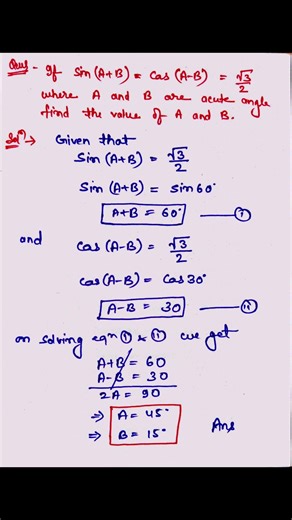 Ques - If Sin(A+B) = Cos(A-B) = √3/2
where A and B are acute angle
find the value of A and B.
Solⁿ → Given that
Sin(A+B) = √3/2
Sin(A+B) = Sin60°
A+B = 60° — (i)
and
Cos(A-B) = √3/2
Cos(A-B) = Cos30°
A-B = 30 — (ii)
on solving eqⁿ (i) & (ii) we get
A+B = 60
A-B = 30
2A = 90
⇒ A = 45°
⇒ B = 15° Ans